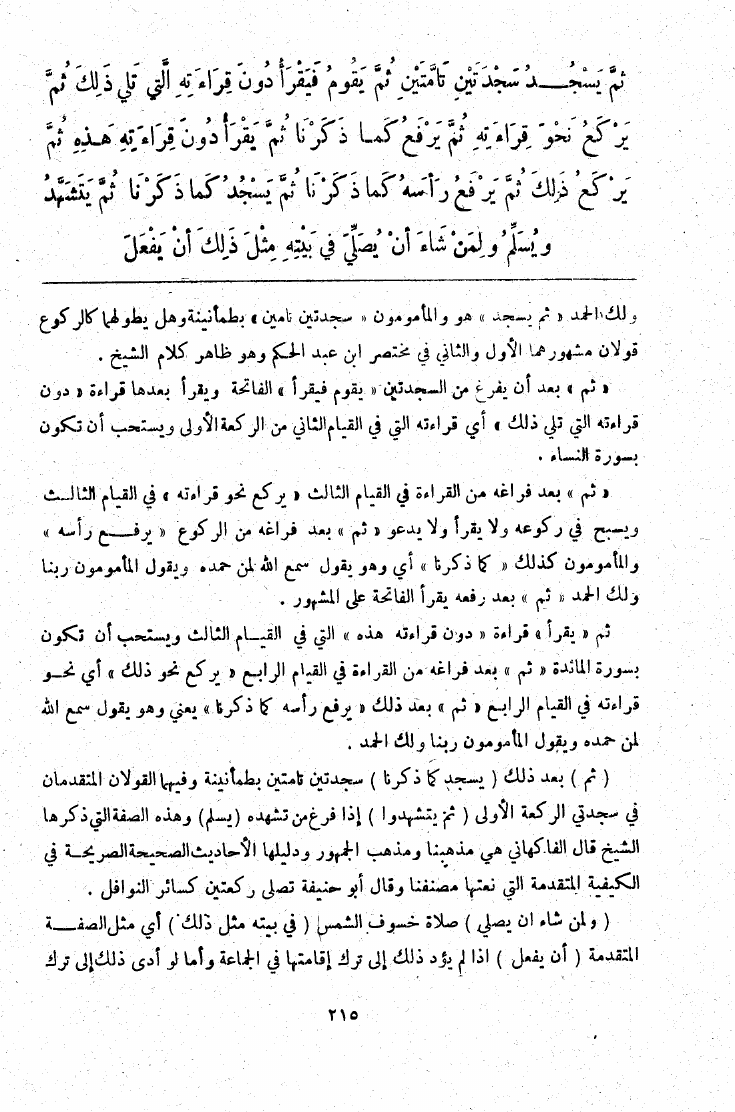 ثُمَّ يَسْجُـــدُ سَجْدَتَيْنِ تَامَّتَيْنِ ثُمَّ يَقُومُ فَيَقْرَأُ دُونَ قِرَاءَتِهِ الَّتِي تَلِي ذَلِكَ ثُمَّ
يَرْكَعُ نَحْوَ قِرَاءَتِهِ ثُمَّ يَرْفَعُ كَمَا ذَكَرْنَا ثُمَّ يَقْرَأُ دُونَ قِرَاءَتِهِ هَذِهِ ثُمَّ
يَرْكَعُ ذَلِكَ ثُمَّ يَرْفَعُ رَأْسَهُ كَمَا ذَكَرْنَا ثُمَّ يَسْجُدُ كَمَا ذَكَرْنَا ثُمَّ يَتَشَهَّدُ
وَيُسَلِّمُ وَلِمَنْ شَاءَ أَنْ يُصَلِّيَ فِي بَيْتِهِ مِثْلَ ذَلِكَ أَنْ يَفْعَلَ
ولك الحمد « ثم يسجد » هو والمأمومون « سجدتين تامتين » بطمأنينة وهل يطولهما كالركوع
قولان مشهورهما الأول والثاني في مختصر ابن عبد الحكم وهو ظاهر كلام الشيخ .
« ثم » بعد أن يفرغ من السجدتين « يقوم فيقرأ » الفاتحة ويقرأ بعدها قراءة « دون
قراءته التي تلي ذلك » أي قراءته التي في القيام الثاني من الركعة الأولى ويستحب أن تكون
بسورة النساء .
« ثم » بعد فراغه من القراءة في القيام الثالث « يركع نحو قراءته » في القيام الثالث
ويسبح في ركوعه ولا يقرأ ولا يدعو « ثم » بعد فراغه من الركوع « يرفع رأسه »
والمأمومون كذلك « كما ذكرنا » أي وهو يقول سمع الله لمن حمده ويقول المأمومون ربنا
ولك الحمد « ثم » بعد رفعه يقرأ الفاتحة على المشهور .
ثم « يقرأ » قراءة « دون قراءته هذه » التي في القيام الثالث ويستحب أن تكون
بسورة المائدة « ثم » بعد فراغه من القراءة في القيام الرابع « يركع نحو ذلك » أي نحو
قراءته في القيام الرابع « ثم » بعد ذلك « يرفع رأسه كما ذكرنا » يعني وهو يقول سمع الله
لمن حمده ويقول المأمومون ربنا ولك الحمد .
( ثم ) بعد ذلك ( يسجد كما ذكرنا ) سجدتين تامتين بطمأنينة وفيهما القولان المتقدمان
في سجدتي الركعة الأولى ( ثم يتشهدوا ) إذا فرغ من تشهده (يسلم) وهذه الصفة التي ذكرها
الشيخ قال الفاكهاني هي مذهبنا ومذهب الجمهور ودليلها الأحاديث الصحيحة الصريحة في
الكيفية المتقدمة التي نعتها مصنفنا وقال أبو حنيفة تصلى ركعتين كسائر النوافل .
( ولمن شاء ان يصلي ) صلاة خسوف الشمس ( في بيته مثل ذلك ) أي مثل الصفة
المتقدمة ( أن يفعل ) اذا لم يؤد ذلك إلى ترك إقامتها في الجماعة وأما لو أدى ذلك إلى ترك
٢١٥